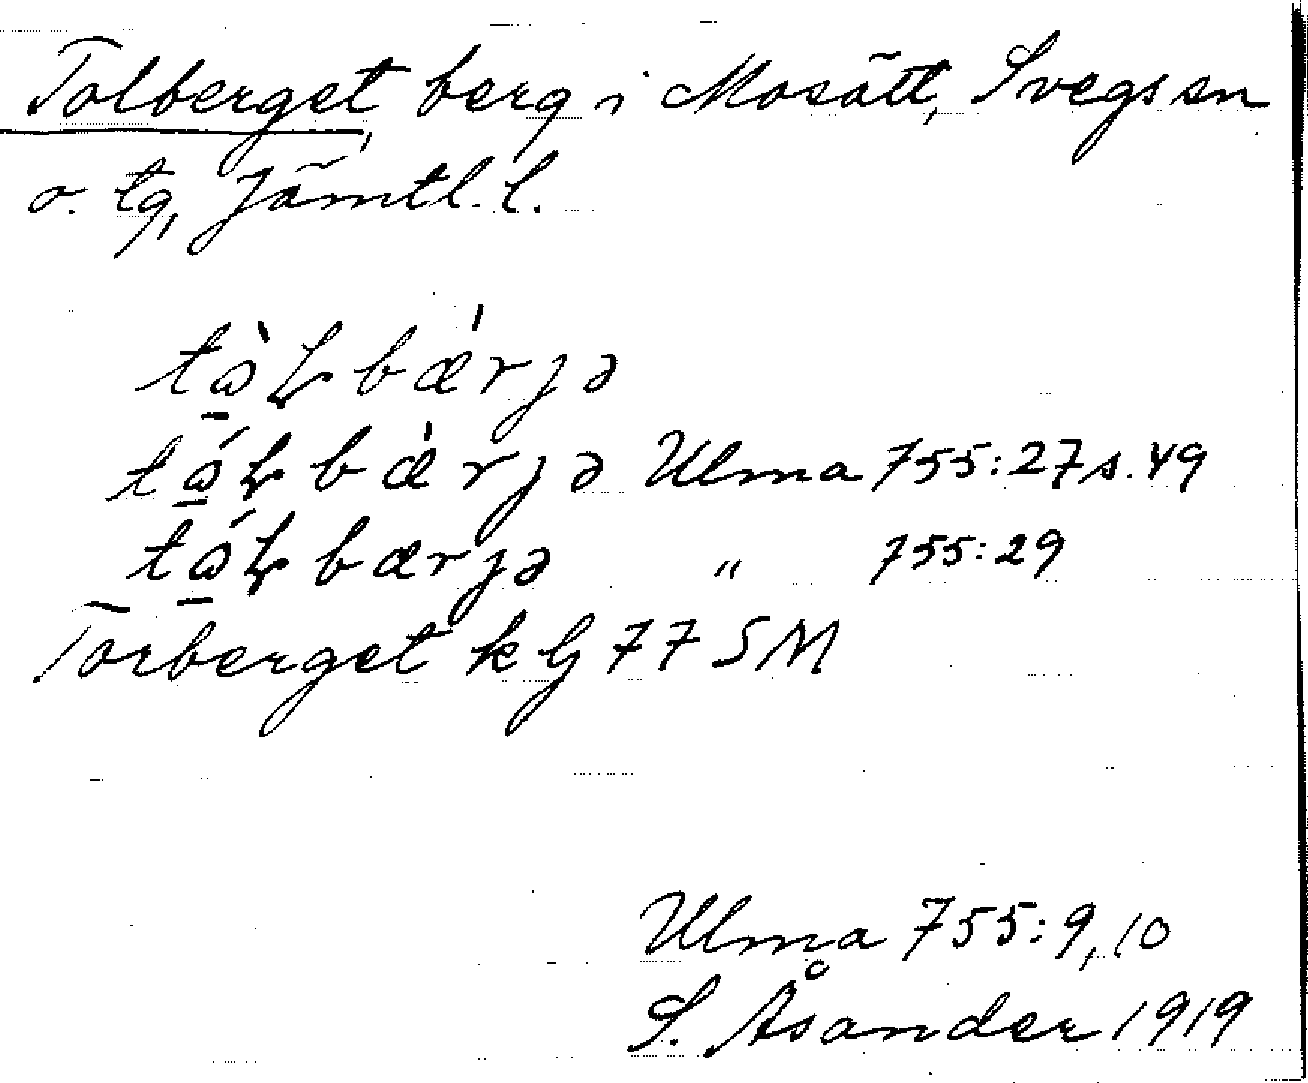 Tolberget, berg i Mosätt, Svegs sn
o. tg, Jämtl. l.
tɷ̠̀ⱢbǽrJə
tɷ̠́Ɫbæ̀rJə Ulma 755:27 s. 49
tɷ̠́ⱢbærJə " 755:29
Torberget k Lj 77 SM
Ulma 755:9, 10
S. Åsander 1919